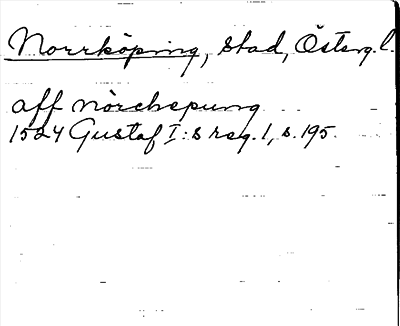 Norrköping, stad, Österg. l.
aff nörchepung
1524 Gustaf I:s reg. 1, s. 195.